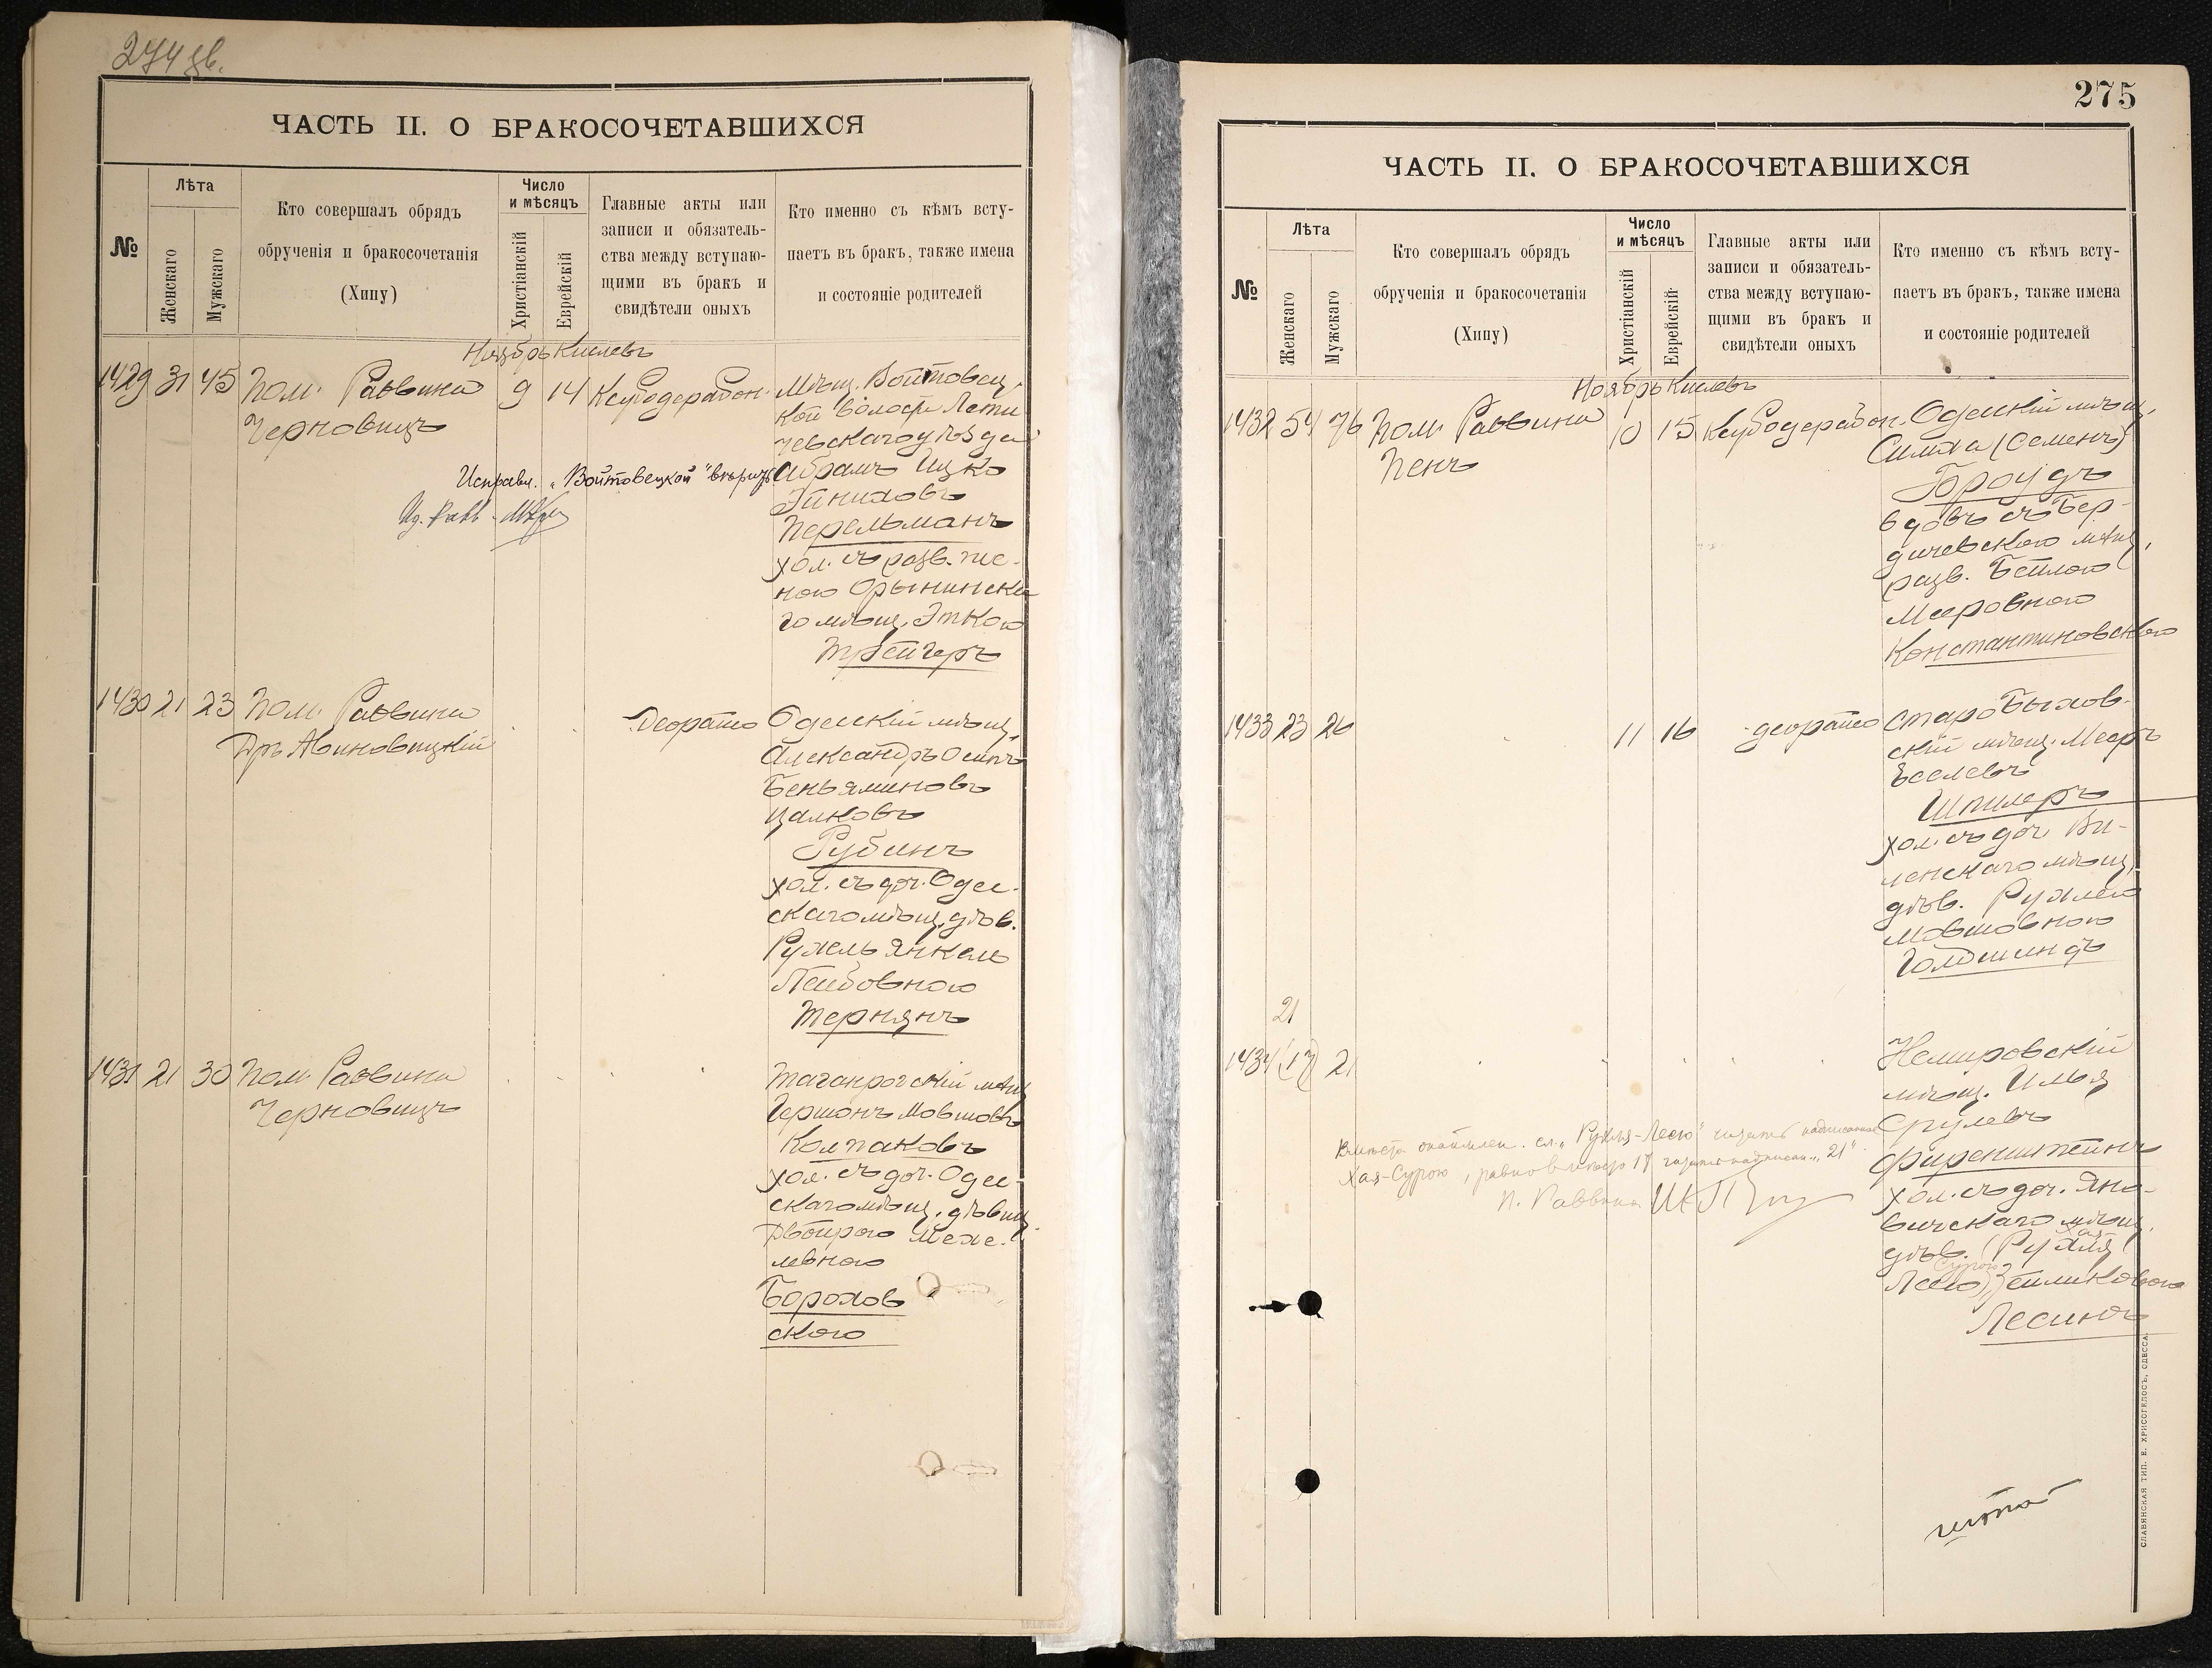 274 зв.
ЧАСТЬ II. О БРАКОСОЧЕТАВШИХСЯ
№
Лѣта
Женскаго
Мужскаго
Кто совершалъ обрядъ
обрученія и бракосочетанія
(Хипу)
Число
и мѣсяцъ
Христіанскій
Еврейскій
Главные акты или
записи и обязатель-
ства между вступаю-
щими въ бракъ и
свидѣтели оныхъ
Кто именно съ кѣмъ всту-
паетъ въ бракъ, также имена
и состояніе родителей
Ноябрь Кислевъ
1429 31 45 Пом. Раввина
Черновицъ
9 14 Ксубодерабон.
Мѣщ. Войтовец-
кой волости Лети
чевскаго уѣзда
Абрамъ Ицко
Эйниховъ
Перельманъ
хол. съ разв. же-
ною Орынинска
го мѣщ. Эткою
Трейгеръ
Исправл. „Войтовецкой" вѣрить
1430 21 23 Пом. Раввина
Дръ Авиновицкій
Деорайто
Одесскій мѣщ.
Александръ Осипъ
Беньяминовъ
Цалковъ
Рубинъ
хол. съ доч. Одес-
скаго мѣщ. дѣв.
Рухель Янкель
Лейбовною
Тернянъ
1431 21 30 Пом. Раввина
Черновицъ
Таганрогскій мѣщ.
Гершонъ Мовшовъ
Колпаковъ
хол. съ доч. Одес-
скаго мѣщ. дѣвиц.
Двойрою Мехе-
левною
Борохов
скою
275
ЧАСТЬ II. О БРАКОСОЧЕТАВШИХСЯ
№
Лѣта
Женскаго
Мужскаго
Кто совершалъ обрядъ
обрученія и бракосочетанія
(Хипу)
Число
и мѣсяцъ
Христіанскій
Еврейскій
Главные акты или
записи и обязатель-
ства между вступаю-
щими въ бракъ и
свидѣтели оныхъ
Кто именно съ кѣмъ всту-
паетъ въ бракъ, также имена
и состояніе родителей
Ноябрь Кислевъ
1432 54 76 Пом. Раввина
Пенъ
10 15 Ксубодерабон.
Одесскій мѣщ.
Симха (Семенъ)
Броудъ
вдовъ съ Бер-
дичевскою мѣщ.
разв. Бейлою
Мееровною
Константиновскою
1433 23 26
11 16 деорайто
Старобыхов-
скій мѣщ. Мееръ
Іоселевъ
Шпилеръ
хол. съ доч. Ви-
ленскаго мѣщ.
дѣв. Рухлею
Мовшовною
Голдшмидъ
21
1434 (17) 21
Немировскій
мѣщ. Илья
Срулевъ
Фиренштейнъ
хол. съ доч. Яно-
вичскаго мѣщ.
Хая-
дѣв. (Рухля
Сурою
Лею) Зеликовою
Лесинъ
Вмѣсто окаймлен. сл. „Рухля-Лею" читать надписанное
Хая-Сурою, равно вмѣсто 17 читать надписан. „21"
П. Раввина
СЛАВЯНСКАЯ ТИП. Е. ХРИСОГЕЛОСЪ, ОДЕССА.